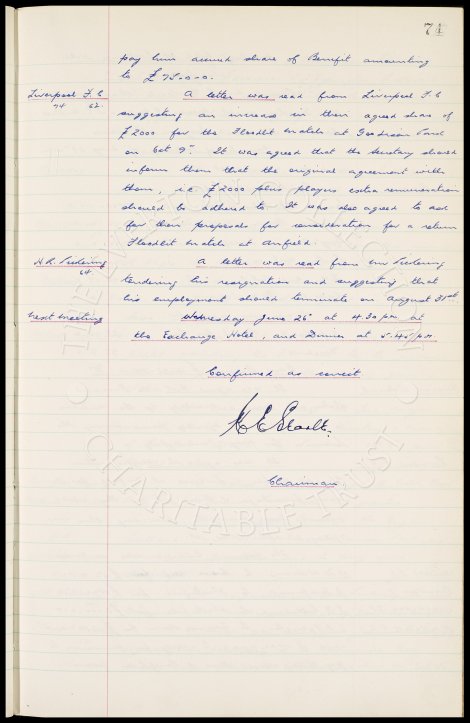 71
pay him accrued share of Benefit amounting
to £75-0-0.
Liverpool F.C A letter was read from Liverpool F.C
74 62. suggesting an increase in their agreed share of
£2000 for the Floodlit match at Goodison Park
on Oct 9". It was agreed that the Secretary should
inform them that the original agreement with
them, i.e £2000 plus players extra remuneration
should be adhered to. It was also agreed to ask
for their proposals for consideration for a return
Floodlit match at Anfield.
H.R. Pickering A letter was read from Mr Pickering
64 tendering his resignation and suggesting that
his employment should terminate on August 31st.
Next Meeting Wednesday June 26" at 4.30 pm at
the Exchange Hotel, and Dinner at 5.45 pm.
Confirmed as correct
Chairman
THE EVERTON COLLECTION
CHARITABLE TRUST